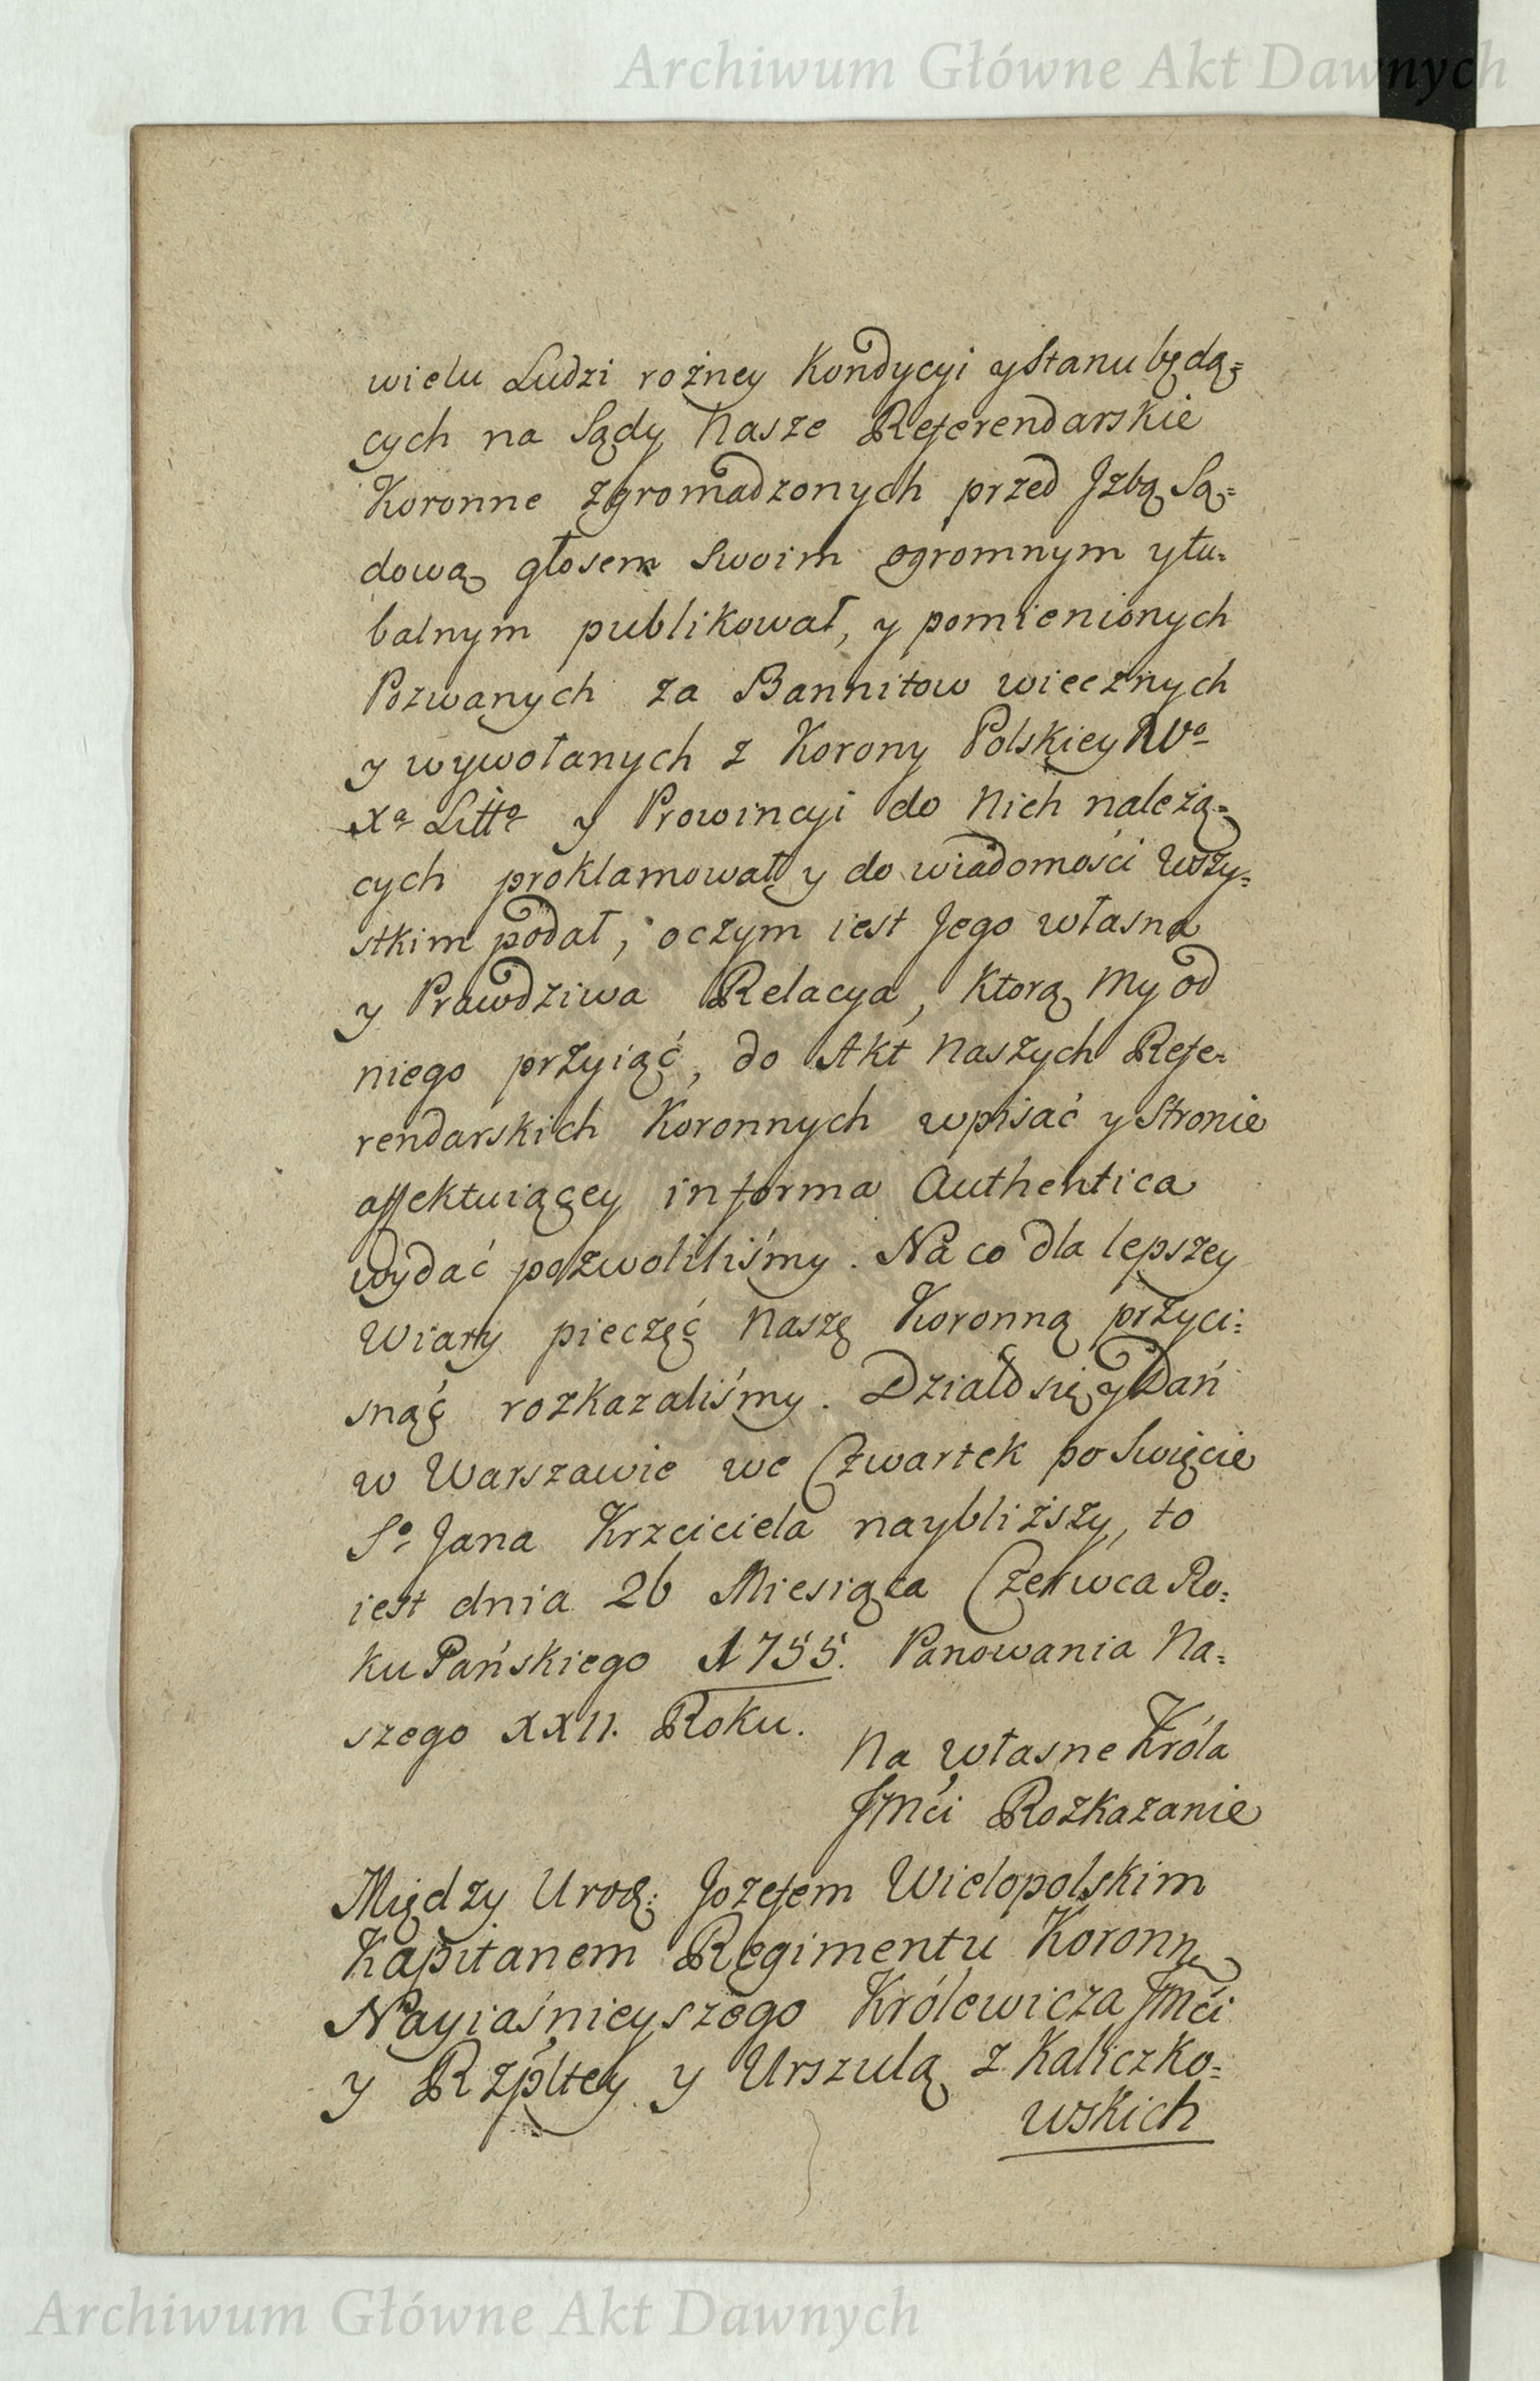 Archiwum Główne Akt Dawnych
wielu Ludzi rożney Kondycyi y Stanu będą=
cych na Sądy Nasze Referendarskie
Koronne zgromadzonych przed Jzbą Są=
dową głosem Swoim ogromnym y tu=
balnym publikował, y pomienionych
Pozwanych za Bannitow wiecznych
y wywołanych z Korony Polskiey Wo
Xa Litto y Prowincyi do Nich należą=
cych proklamował y do wiadomości Wszy=
stkim podał, o czym iest Jego własna
y Prawdziwa Relacya, Ktorą My od
niego przyiąć, do Akt Naszych Refe=
rendarskich Koronnych wpisać y Stronie
affektuiącey in forma Authentica
wydać pozwoliliśmy. Na co dla lepszey
Wiary pieczęć Naszę Koronną przyci=
snąć rozkazaliśmy. Działo się y Dań
w Warszawie we Czwartek po Swięcie
So Jana Krzciciela naybliższy, to
iest dnia 26 Miesiąca Czerwca Ro=
ku Pańskiego 1755. Panowania Na=
szego XXII. Roku.
Na własne Króla
JMći Rozkazanie
Między Urodz: Jozefem Wielopolskim
Kapitanem Regimentu Koronn
Nayiaśnieyszego Królewicza JMći
y Rzpltey y Urszulą z Kaliczko=
wskich
Archiwum Główne Akt Dawnych